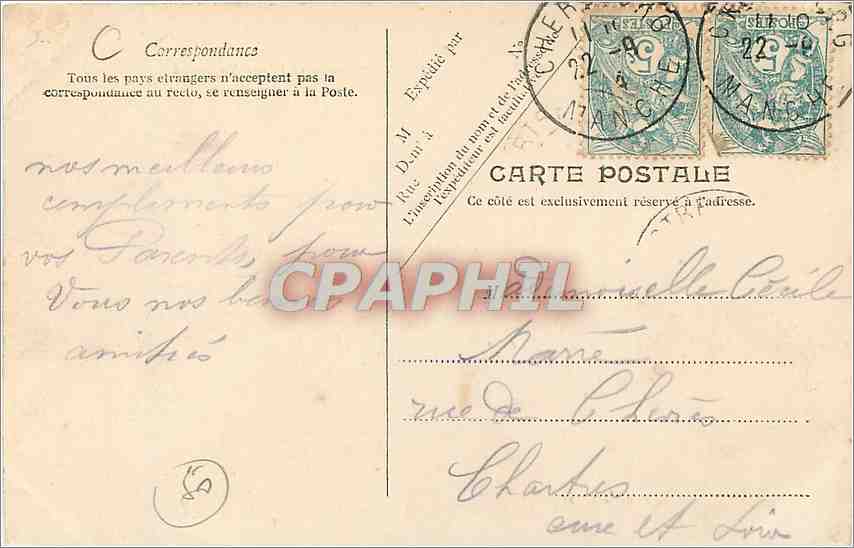 C Correspondance
Tous les pays etrangers n'acceptent pas la
correspondance au recto, se renseigner à la Poste.
nos meilleurs
compliments pour
vos Parents, pour
Vous nos bonnes
amitiés
50
Expédié par
M
Demt à
Rue
No
L'inscription du nom et de l'adresse de
l'expéditeur est facultative
CHERBOURG
22 -9
MANCHE
5
POSTES
22 -9
MANCHE
5
CARTE POSTALE
Ce côté est exclusivement réservé à l'adresse.
CPAPHIL
Mademoiselle Cécile
Marré
rue de
Chartres
eure et Loir